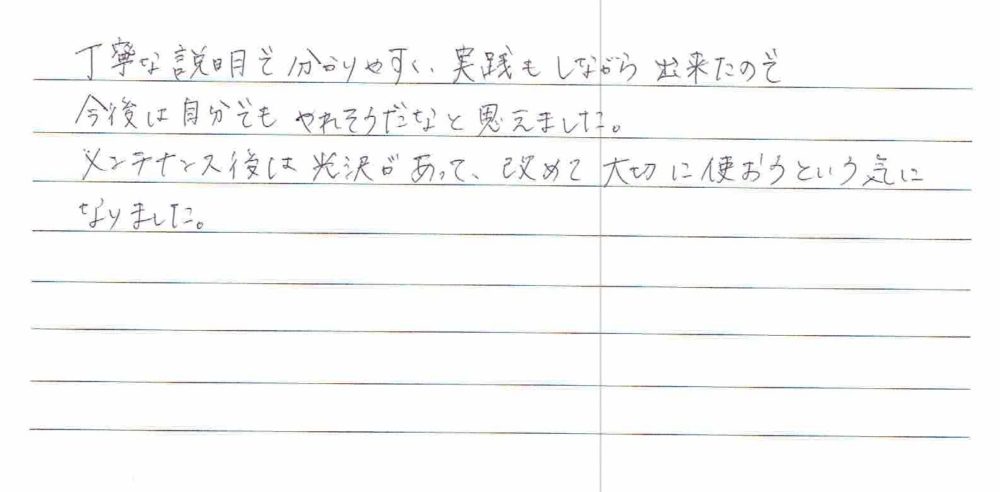 丁寧な説明で分かりやすく、実践もしながら出来たので
今後は自分でもやれそうだなと思えました。
メンテナンス後は光沢があって、改めて大切に使おうという気に
なりました。